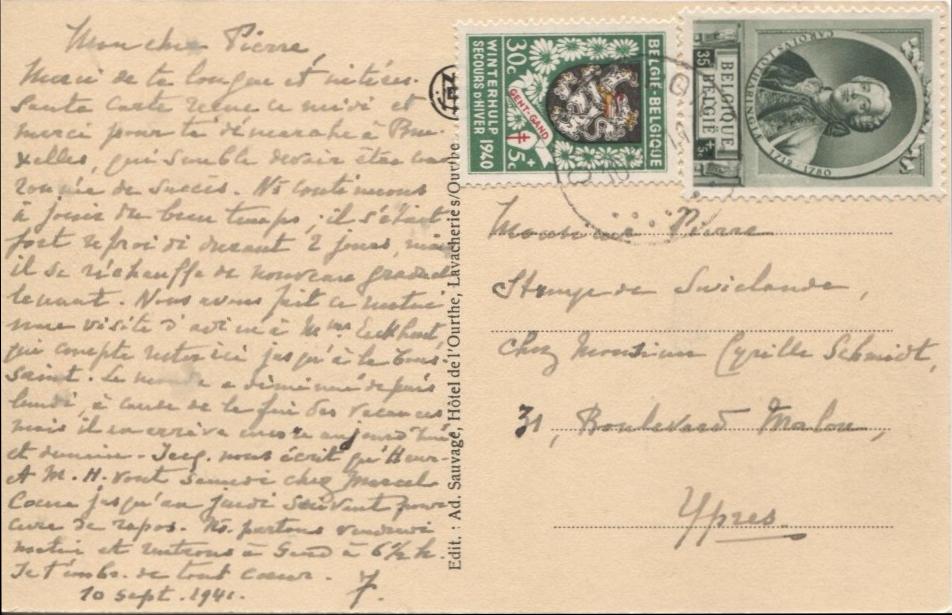 Mon cher Pierre,
Merci de ta longue et intéres-
sante carte reçue ce midi et
merci pour ta démarche à Bru-
xelles, qui semble devoir être cou-
ronnée de succès. Ns continuons
à jouir du beau temps; il s'était
fort refroidi durant 2 jours, mais
il se réchauffe de nouveau graduel-
lement. Nous avons fait ce matin
une visite d'adieu à Mme Eeckhout,
qui compte rester ici jusqu'à la Tous-
saint. Le monde a diminué depuis
lundi, à cause de la fin des vacances
mais il en arrive encore aujourd'hui
et demain. Jacq. nous écrit qu'
et M. H. vont samedi chez Marcel
jusqu'au jeudi suivant pour
cure de repos. Ns. partons vendredi
matin et rentrons à Gand à 6½ h.
Je t'embr. de tout coeur. F.
10 Sept. 1941.
Edit. : Ad. Sauvage, Hôtel de l'Ourthe, Lavacheries/Ourthe
BELGIË-BELGIQUE
30c
+5c
WINTERHULP
SECOURS D'HIVER 1940
GENT-GAND
BELGIQUE
BELGIË
35
1780
Monsieur Pierre
Struye de Swielande,
Chez Monsieur Cyrille Schmidt,
31, Boulevard Malou,
Ypres.